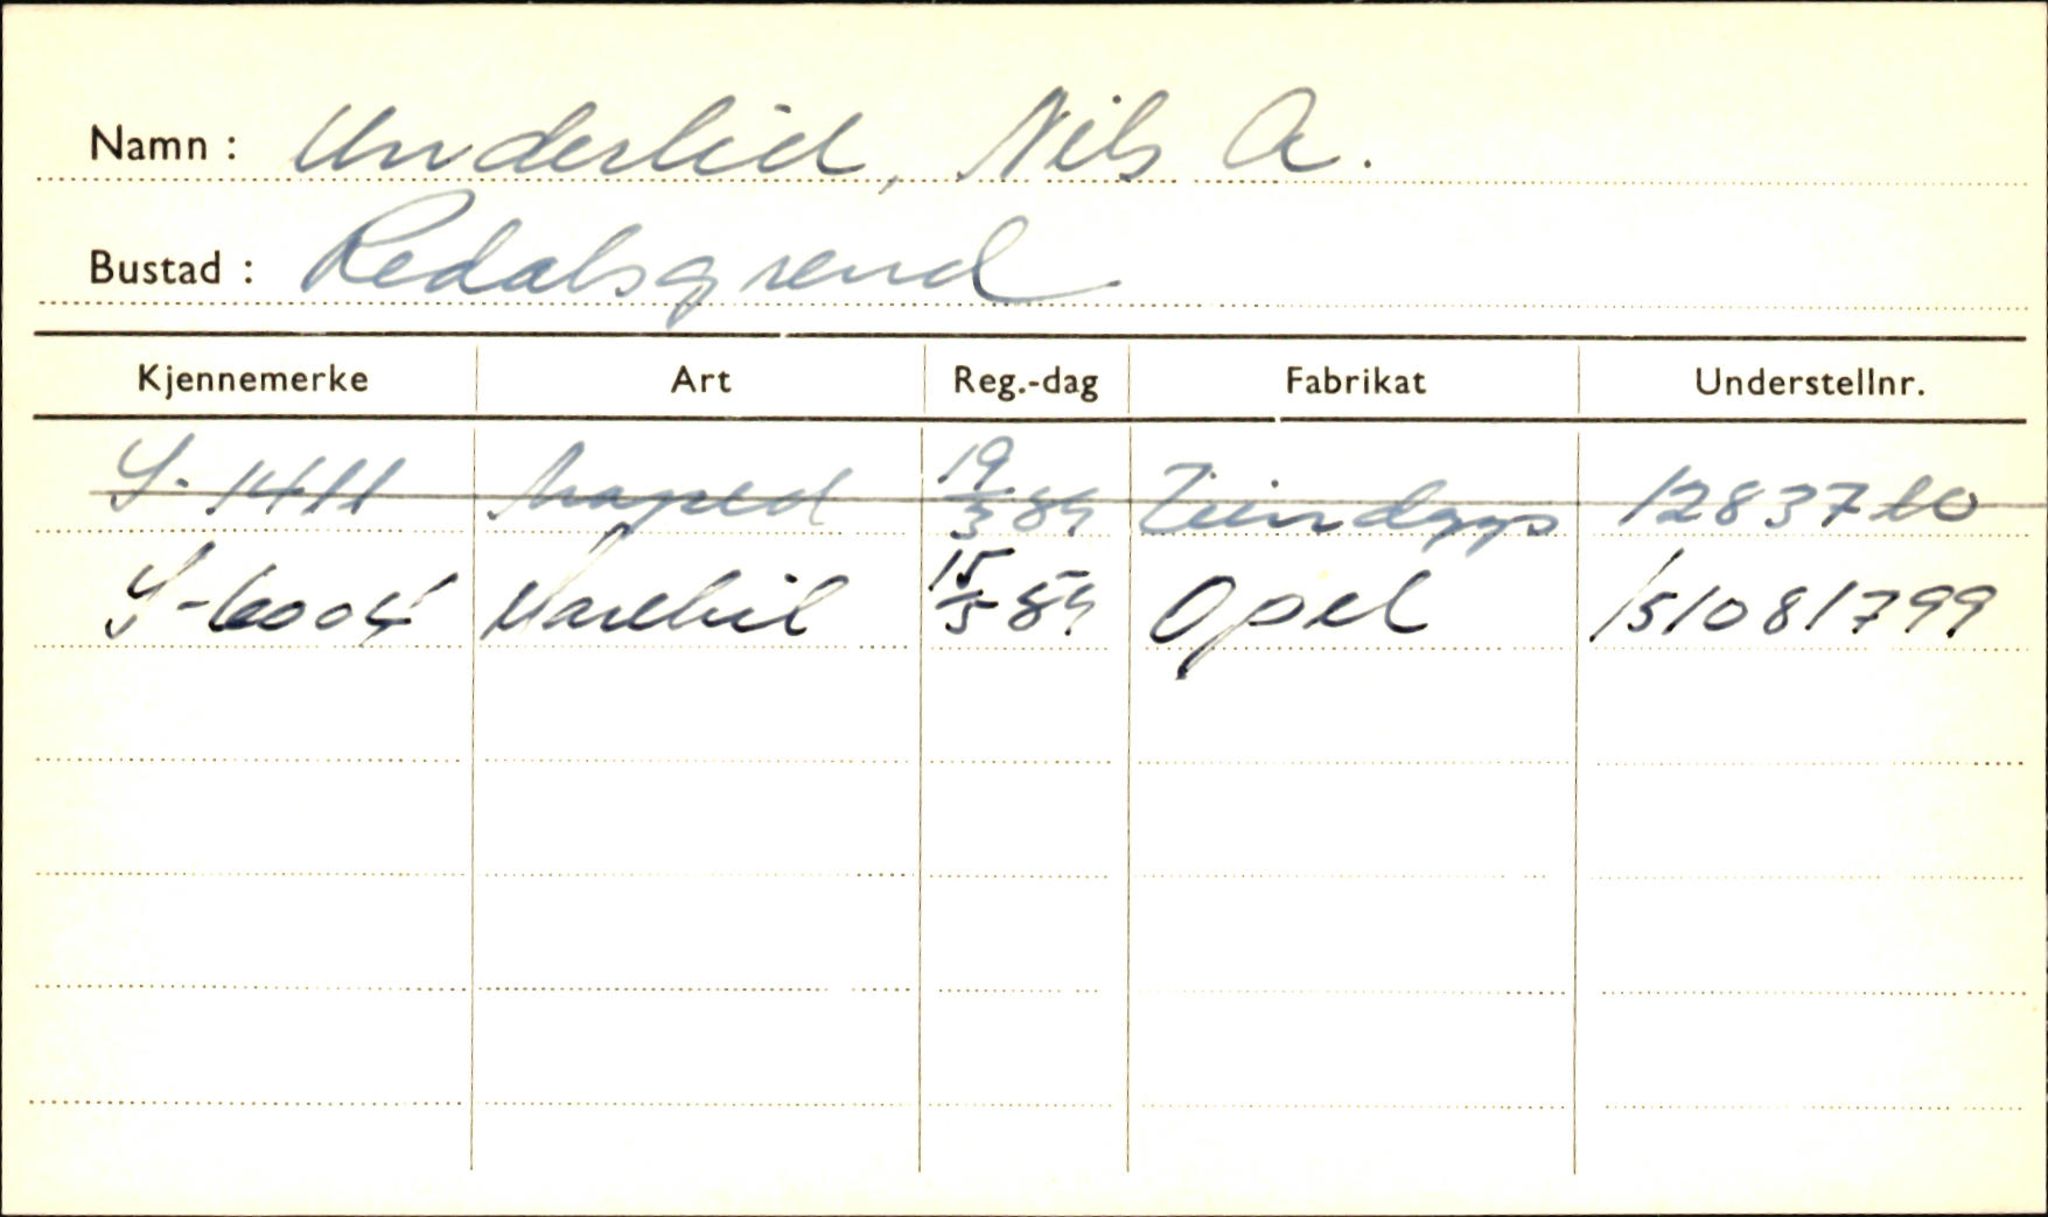 Namn : Underlid, Nils A.
Bustad : Redalsgrend
Kjennemerke Art Reg.-dag Fabrikat Understellnr.
S-1411 Moped 19/3 84 Zündapp 1283710
S-6004 Varebil 15/5 84 Opel 151081799